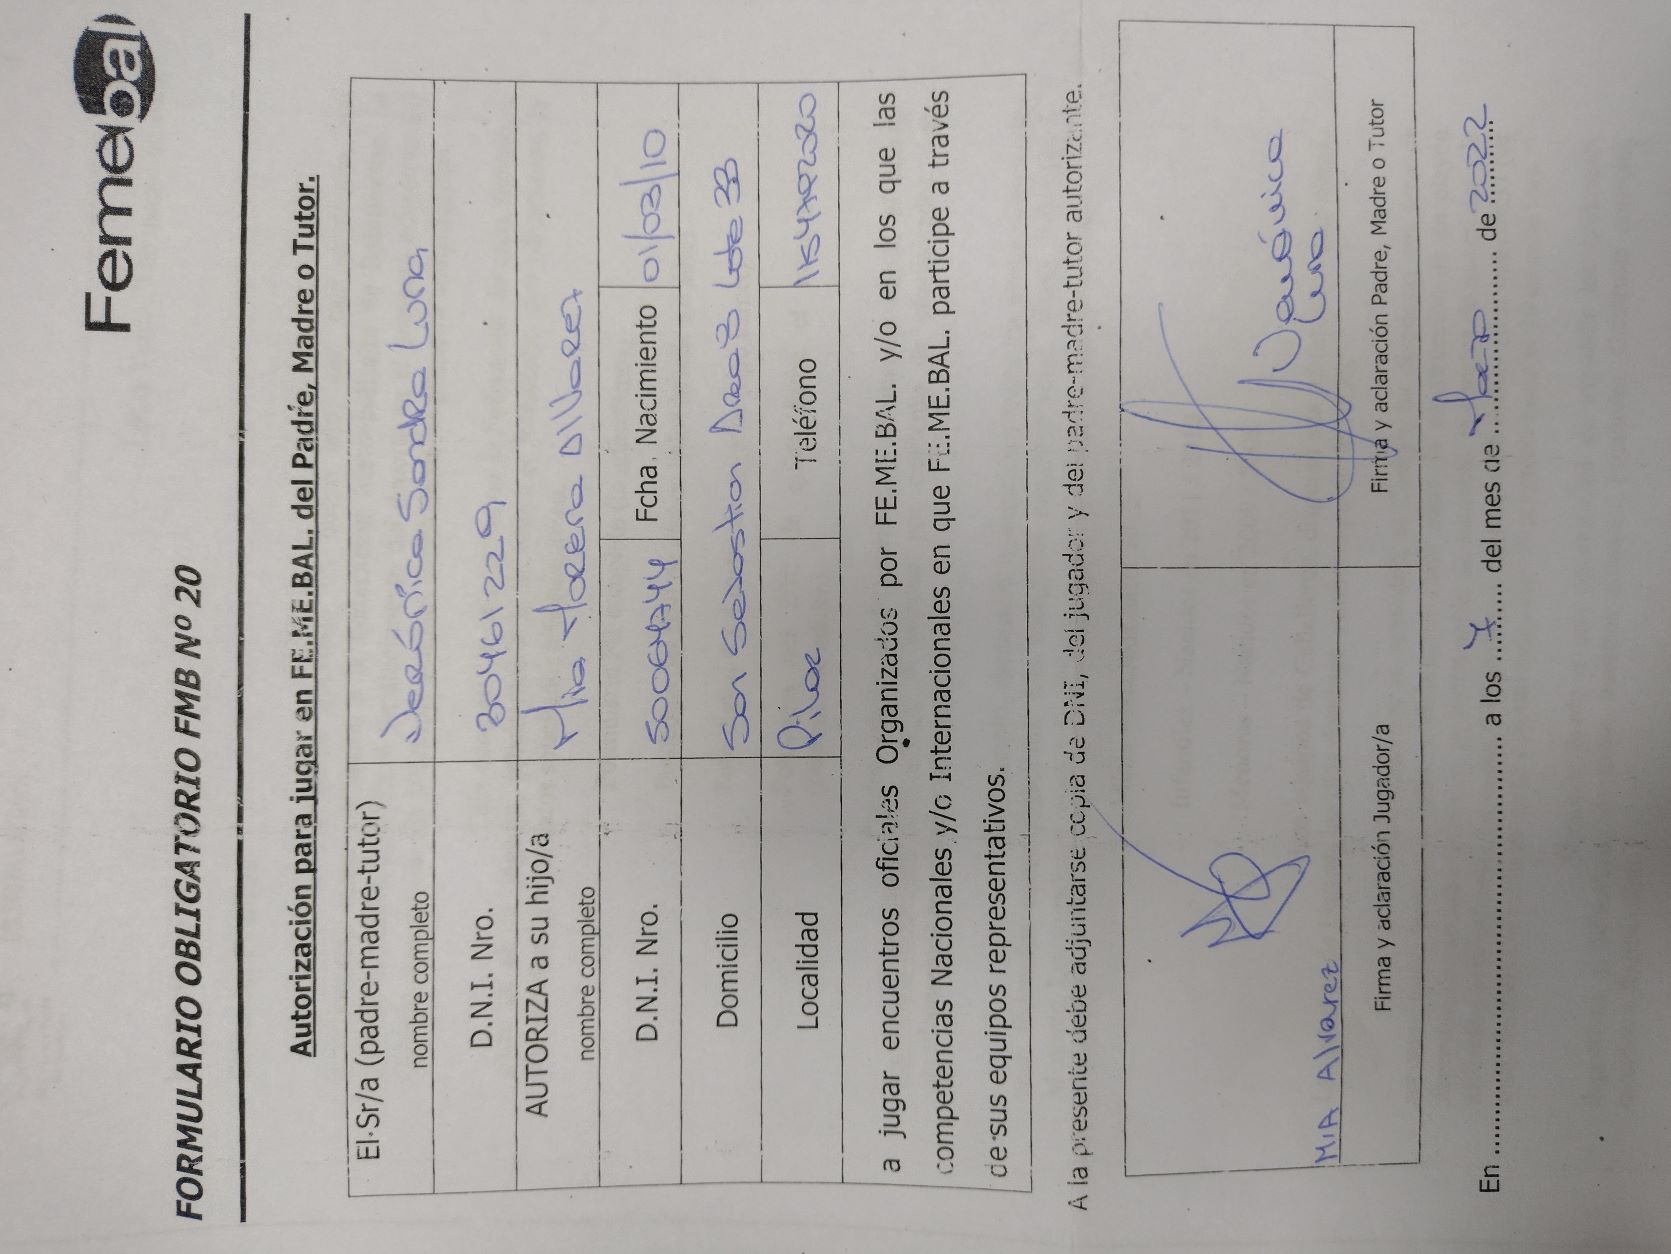 Femebal
FORMULARIO OBLIGATORIO FMB Nº 20
Autorización para jugar en FE.ME.BAL. del Padre, Madre o Tutor.
El Sr/a (padre-madre-tutor)
nombre completo
Verónica Sandra Luna
D.N.I. Nro.
30461229
AUTORIZA a su hijo/a
nombre completo
Mia Morena Alvarez
D.N.I. Nro.
Fcha. Nacimiento 01/03/10
Domicilio
San Sebastian Lote 33
Localidad
Pilar
Teléfono
a jugar encuentros oficiales Organizados por FE.ME.BAL. y/o en los que las
competencias Nacionales y/o Internacionales en que FE.ME.BAL. participe a través
de sus equipos representativos.
A la presente debe adjuntarse copia de DNI, del jugador y del padre-madre-tutor autorizante.
MIA Alvarez
Verónica
Luna
Firma y aclaración Jugador/a
Firma y aclaración Padre, Madre o Tutor
En ........................ a los ..7.. del mes de ............ de 2022